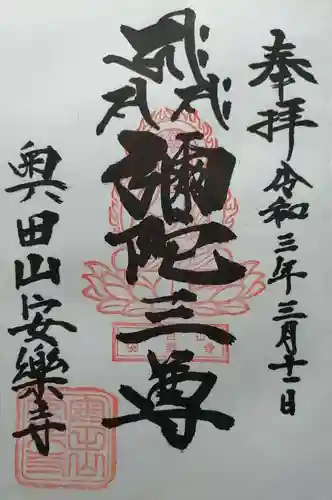 奉拝
令和三年三月十一日
彌陀三尊
奥田山安樂寺